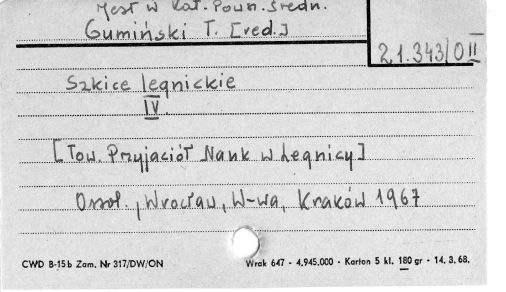 Jest w Kat. Pown. Średn.
Gumiński T. [red.]
21.343/O II
Szkice legnickie
IV.
[Tow. Przyjaciół Nauk w Legnicy]
Ossol., Wrocław, W-wa, Kraków 1967
CWD B-15b Zam. Nr 317/DW/ON
Wrak 647 - 4.945.000 - Karton 5 kl. 180 gr - 14. 3. 68.